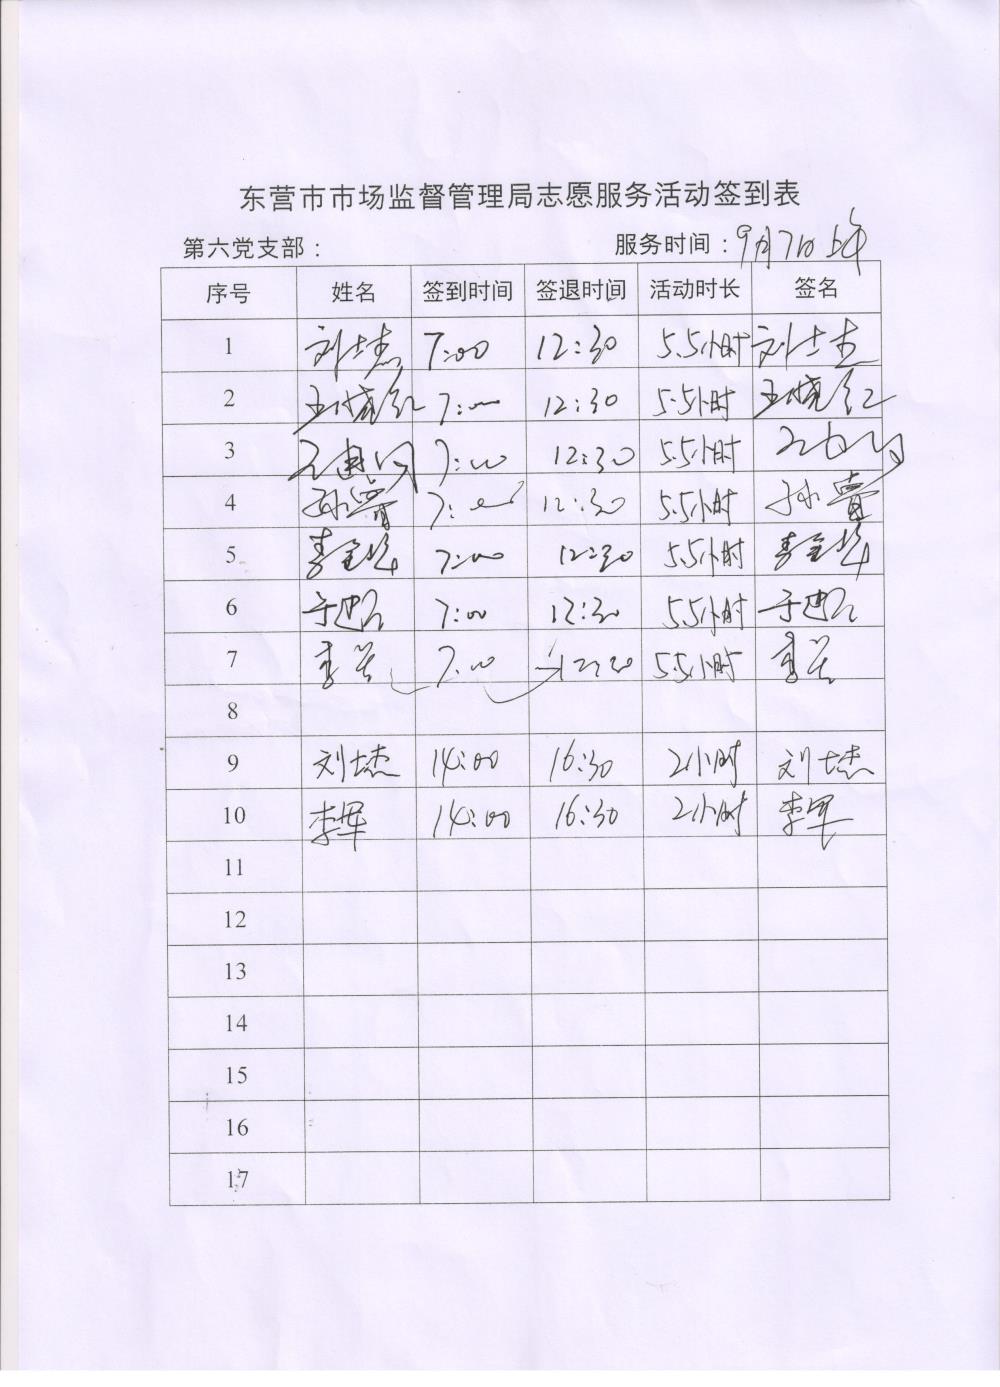 东营市市场监督管理局志愿服务活动签到表
第六党支部： 服务时间：9月7日上午
序号 姓名 签到时间 签退时间 活动时长 签名
1 刘士杰 7:00 12:30 5.5小时 刘士杰
2 王晓红 7:00 12:30 5.5小时 王晓红
3 7:00 12:30 5.5小时
4 孙 7:00 12:30 5.5小时 孙
5 李金华 7:00 12:30 5.5小时 李金华
6 于 7:00 12:30 5.5小时 于
7 李 7:00 12:30 5.5小时 李
8
9 刘士杰 14:00 16:30 2小时 刘士杰
10 李军 14:00 16:30 2小时 李军
11
12
13
14
15
16
17